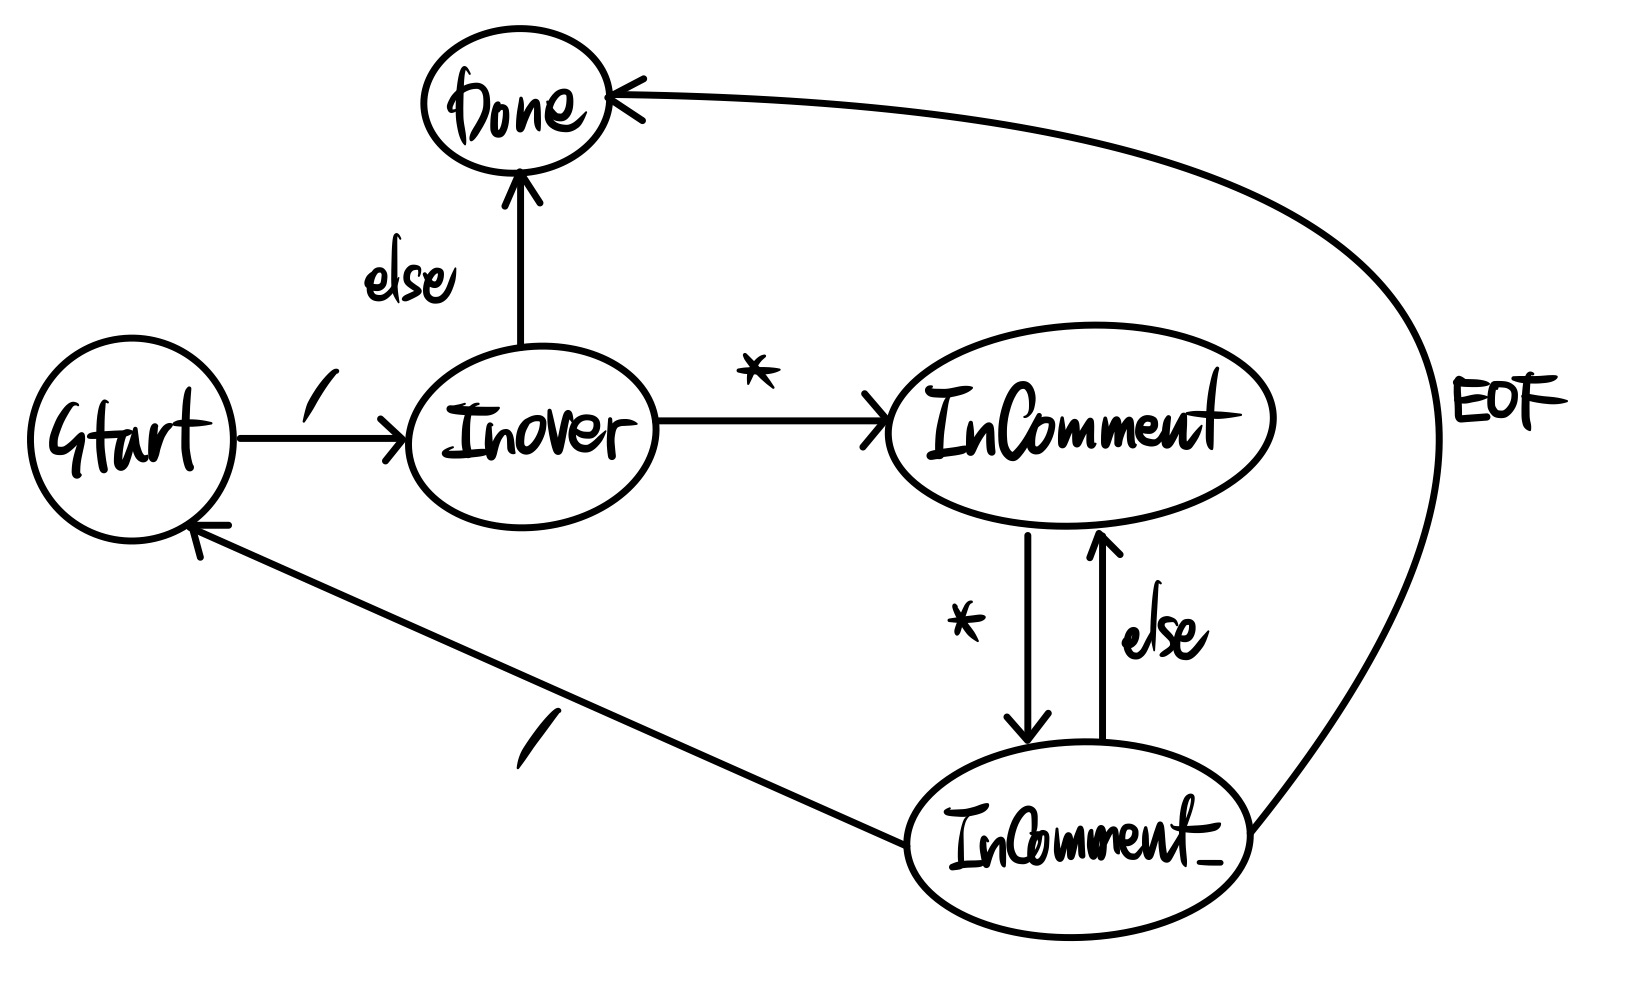 Done
else
Start
/
Inover
*
InComment
EOF
*
else
/
InComment_